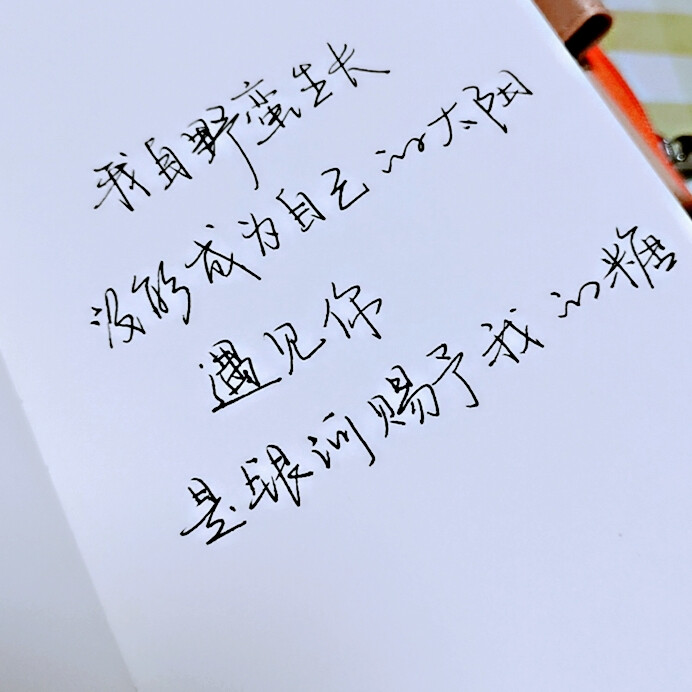 我自野蛮生长
没能成为自己的太阳
遇见你
是银河赐予我的糖